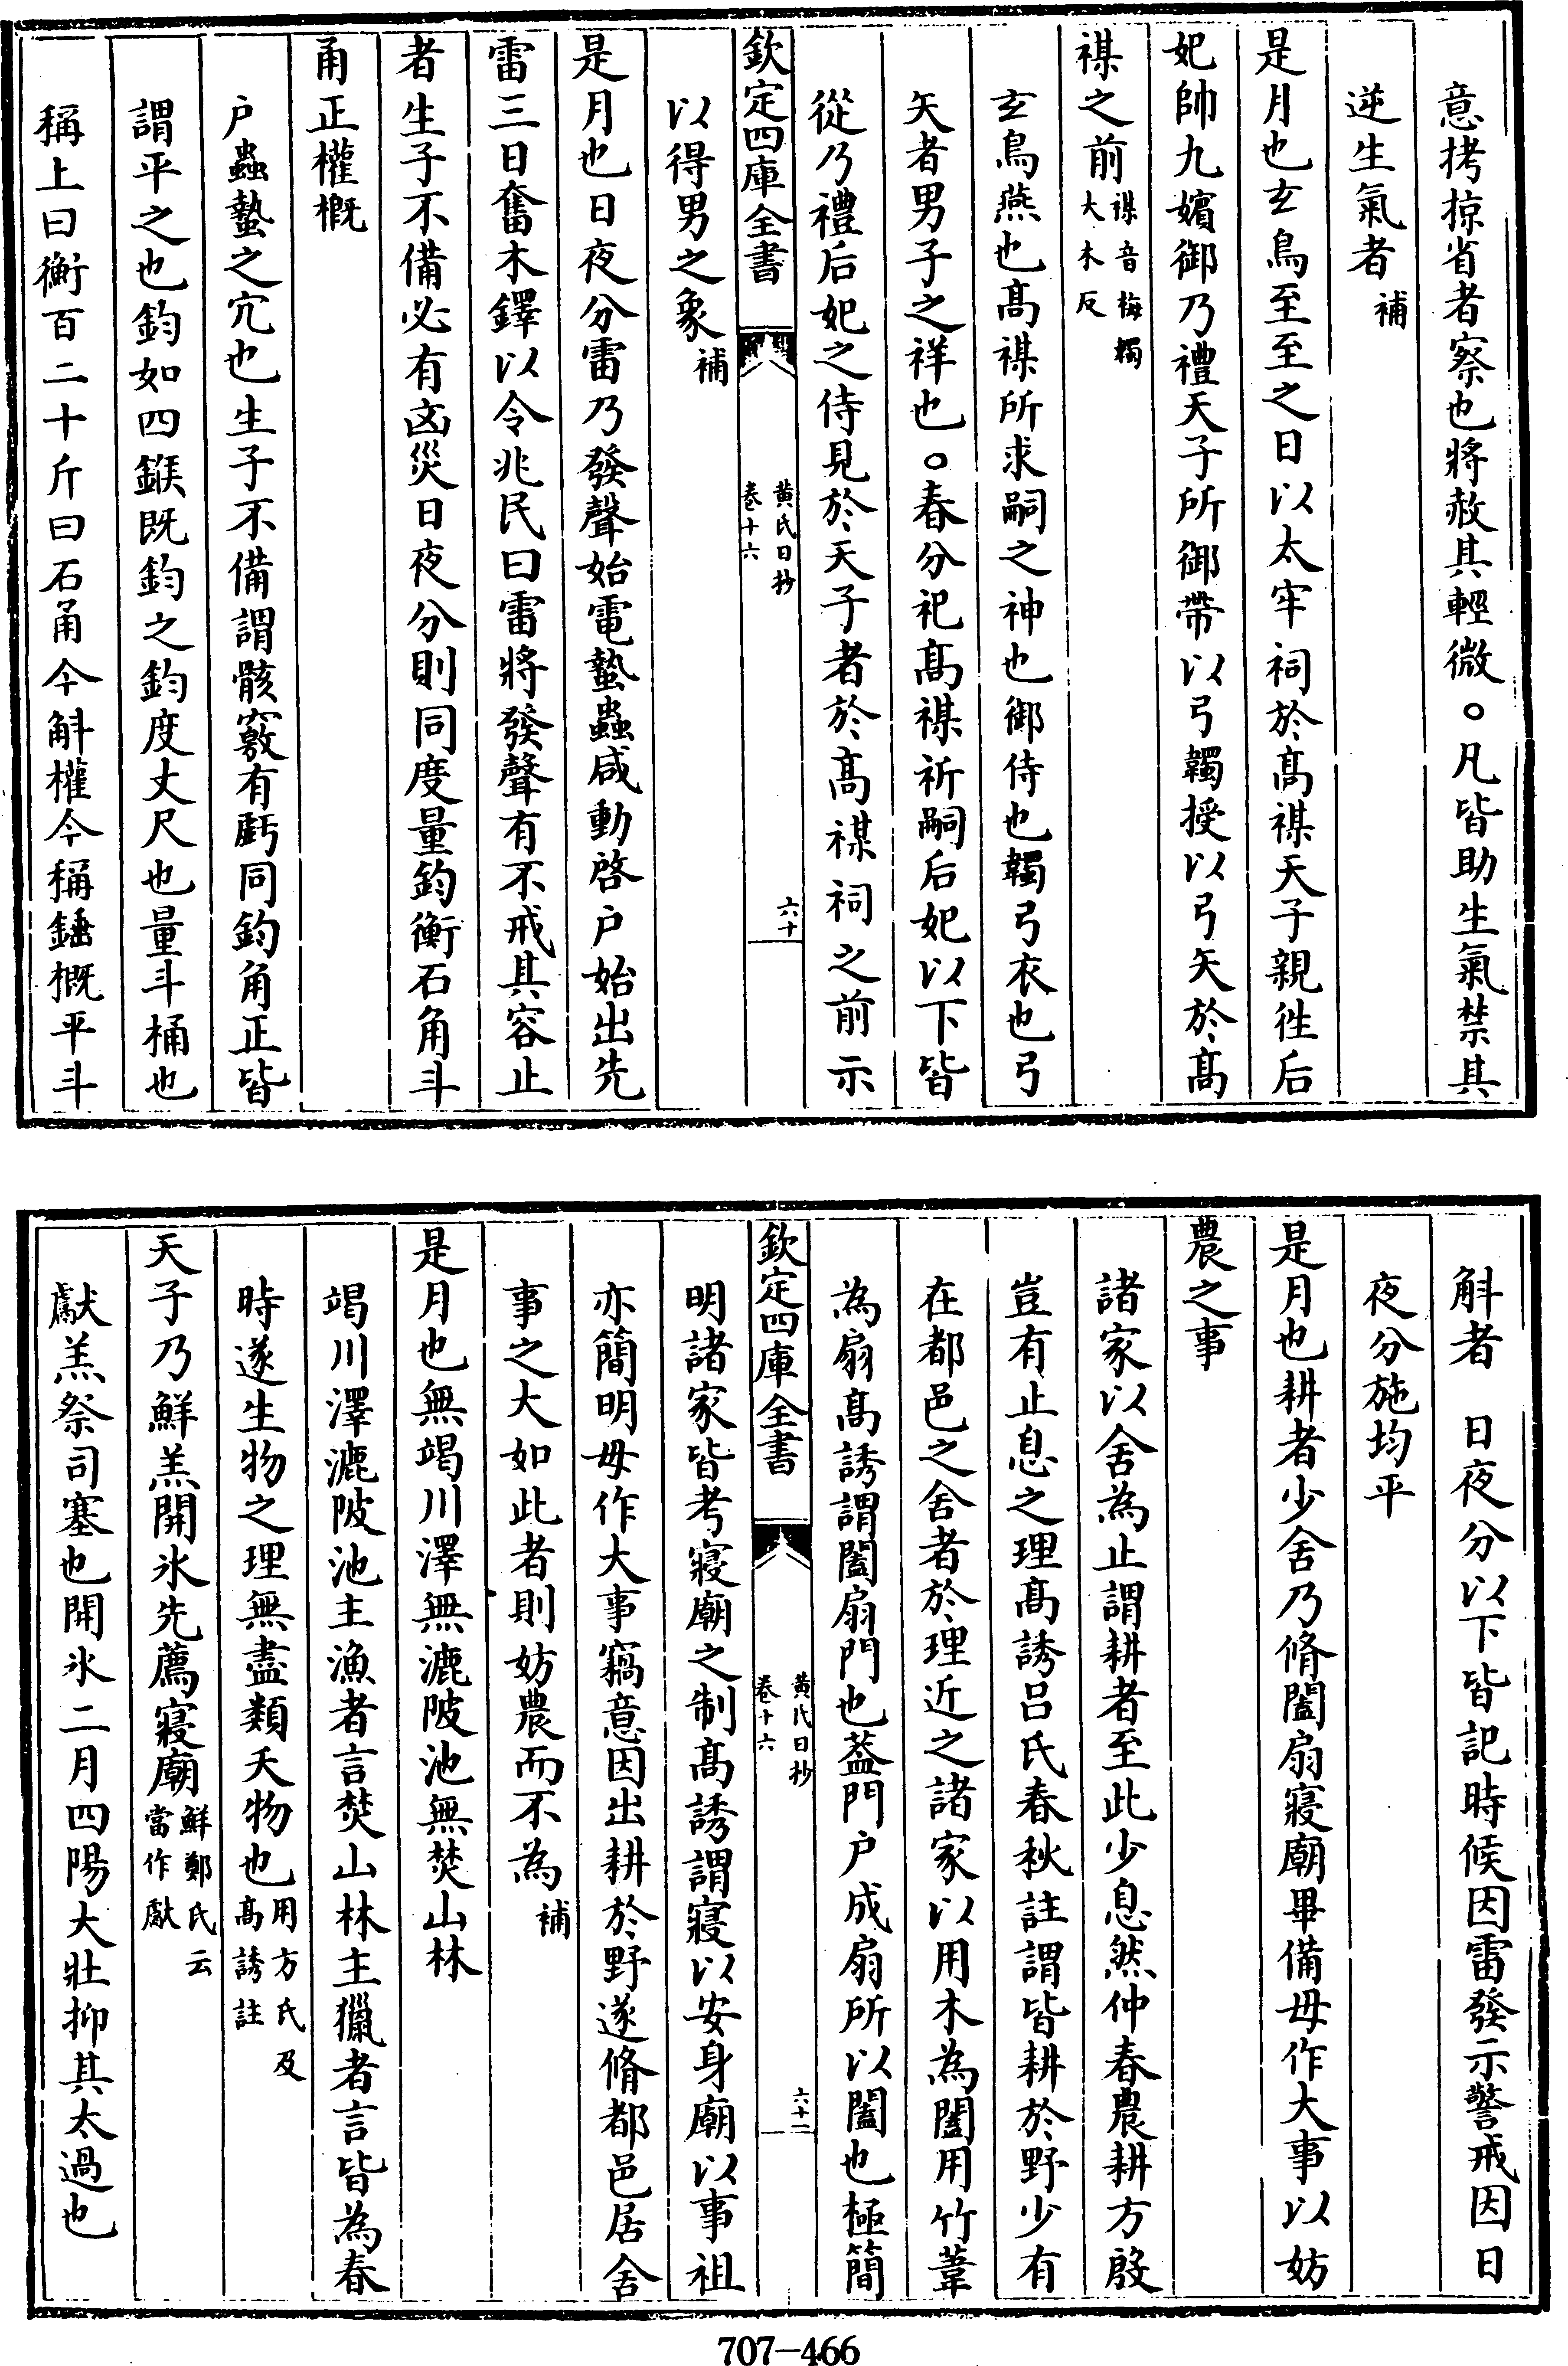 意拷掠省者察也將赦其輕微○凡皆助生氣禁其
逆生氣者補
是月也玄鳥至至之日以太牢祠於髙禖天子親徃后
妃帥九嬪御乃禮天子所御帶以弓韣授以弓矢於髙
禖之前禖音梅韣大木反
玄鳥燕也髙禖所求嗣之神也御侍也韣弓衣也弓
矢者男子之祥也○春分祀髙禖祈嗣后妃以下皆
從乃禮后妃之侍見於天子者於髙禖祠之前示
欽定四庫全書 黄氏日抄卷十六 六十
以得男之象補
是月也日夜分雷乃發聲始電蟄蟲咸動啓户始出先
雷三日奮木鐸以令兆民曰雷將發聲有不戒其容止
者生子不備必有凶災日夜分則同度量鈞衡石角斗
甬正權概
户蟲蟄之穴也生子不備謂骸竅有虧同鈞角正皆
謂平之也鈞如四鍭既鈞之鈞度丈尺也量斗桶也
稱上曰衡百二十斤曰石甬今斛權今稱錘概平斗
斛者 日夜分以下皆記時候因雷發示警戒因日
夜分施均平
是月也耕者少舍乃脩闔扇寢廟畢備毋作大事以妨
農之事
諸家以舍為止謂耕者至此少息然仲春農耕方殷
豈有止息之理髙誘吕氏春秋註謂皆耕於野少有
在都邑之舍者於理近之諸家以用木為闔用竹葦
為扇髙誘謂闔扇門也葢門户成扇所以闔也極簡
欽定四庫全書 黄氏日抄卷十六 六十一
明諸家皆考寢廟之制髙誘謂寢以安身廟以事祖
亦簡明毋作大事竊意因出耕於野遂脩都邑居舍
事之大如此者則妨農而不為補
是月也無竭川澤無漉陂池無焚山林
竭川澤漉陂池主漁者言焚山林主獵者言皆為春
時遂生物之理無盡類夭物也用方氏及髙誘註
天子乃鮮羔開氷先薦寢廟鮮鄭氏云當作獻
獻羔祭司寒也開氷二月四陽大壯抑其太過也
707-466